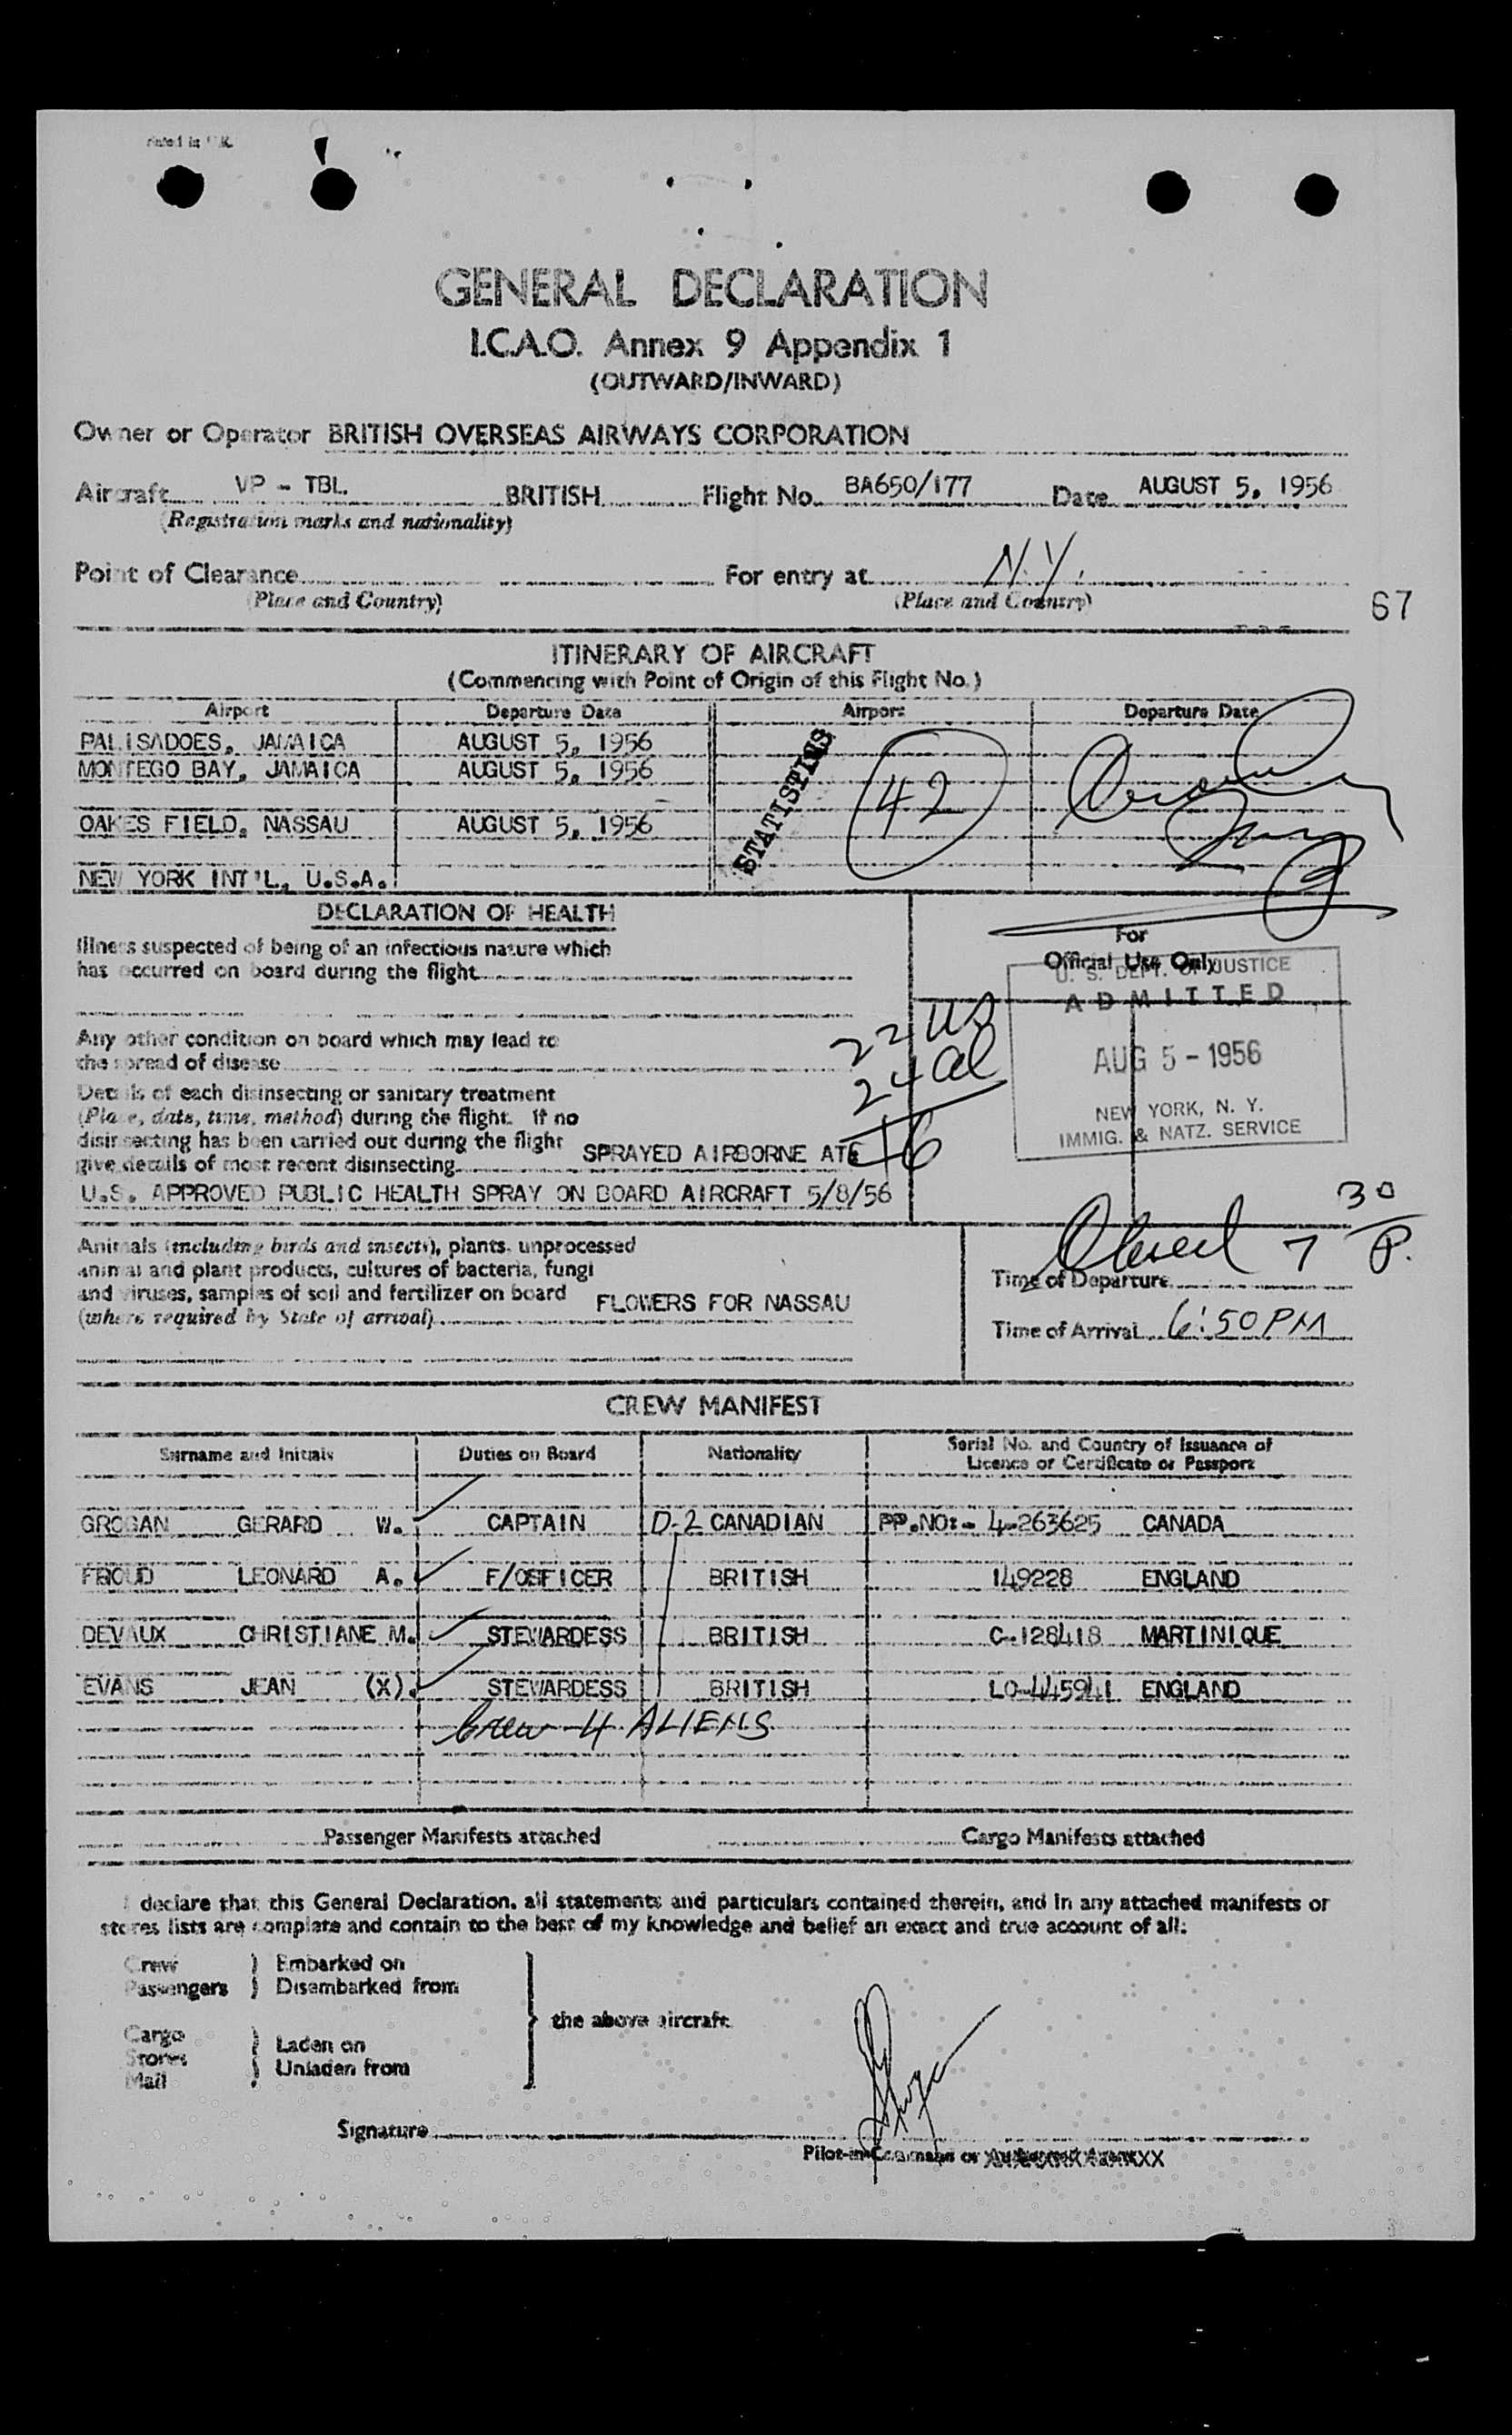 GENERAL DECLARATION
I.C.A.O. Annex 9 Appendix 1
(OUTWARD/INWARD)
Owner or Operator BRITISH OVERSEAS AIRWAYS CORPORATION
Aircraft VP - TBL. BRITISH Flight No. BA650/177 Date AUGUST 5, 1956
(Registration marks and nationality)
Point of Clearance For entry at N.Y.
(Place and Country) (Place and Country)
67
ITINERARY OF AIRCRAFT
(Commencing with Point of Origin of this Flight No.)
Airport Departure Date Airport Departure Date
PALISADOES, JAMAICA AUGUST 5, 1956
MONTEGO BAY, JAMAICA AUGUST 5, 1956
STATISTICS
42
OAKES FIELD, NASSAU AUGUST 5, 1956
NEW YORK INT'L, U.S.A.
DECLARATION OF HEALTH
Illness suspected of being of an infectious nature which
has occurred on board during the flight
For
Official Use Only
U. S. DEPT. OF JUSTICE
ADMITTED
AUG 5 - 1956
NEW YORK, N. Y.
IMMIG. & NATZ. SERVICE
22 US
24 al
46
Any other condition on board which may lead to
the spread of disease
Details of each disinsecting or sanitary treatment
(Place, date, time, method) during the flight. If no
disinsecting has been carried out during the flight
give details of most recent disinsecting SPRAYED AIRBORNE
U.S. APPROVED PUBLIC HEALTH SPRAY ON BOARD AIRCRAFT 5/8/56
Animals (including birds and insects), plants, unprocessed
animal and plant products, cultures of bacteria, fungi
and viruses, samples of soil and fertilizer on board
(where required by State of arrival) FLOWERS FOR NASSAU
Closed 7 30 P.
Time of Departure
Time of Arrival 6:50 PM
CREW MANIFEST
Surname and Initials Duties on Board Nationality Serial No. and Country of Issuance of
Licence or Certificate or Passport
GROGAN GERARD W. CAPTAIN D-2 CANADIAN PP.NO:- 4-263625 CANADA
FROUD LEONARD A. F/OFFICER BRITISH 149228 ENGLAND
DEVAUX CHRISTIANE M. STEWARDESS BRITISH C-128418 MARTINIQUE
EVANS JEAN (X). STEWARDESS BRITISH LO-445941 ENGLAND
Crew 4 ALIENS
Passenger Manifests attached Cargo Manifests attached
I declare that this General Declaration, all statements and particulars contained therein, and in any attached manifests or
stores lists are complete and contain to the best of my knowledge and belief an exact and true account of all:
Crew ) Embarked on
Passengers ) Disembarked from
the above aircraft
Cargo
Stores ) Laden on
Mail ) Unladen from
Signature
Pilot-in-Command or